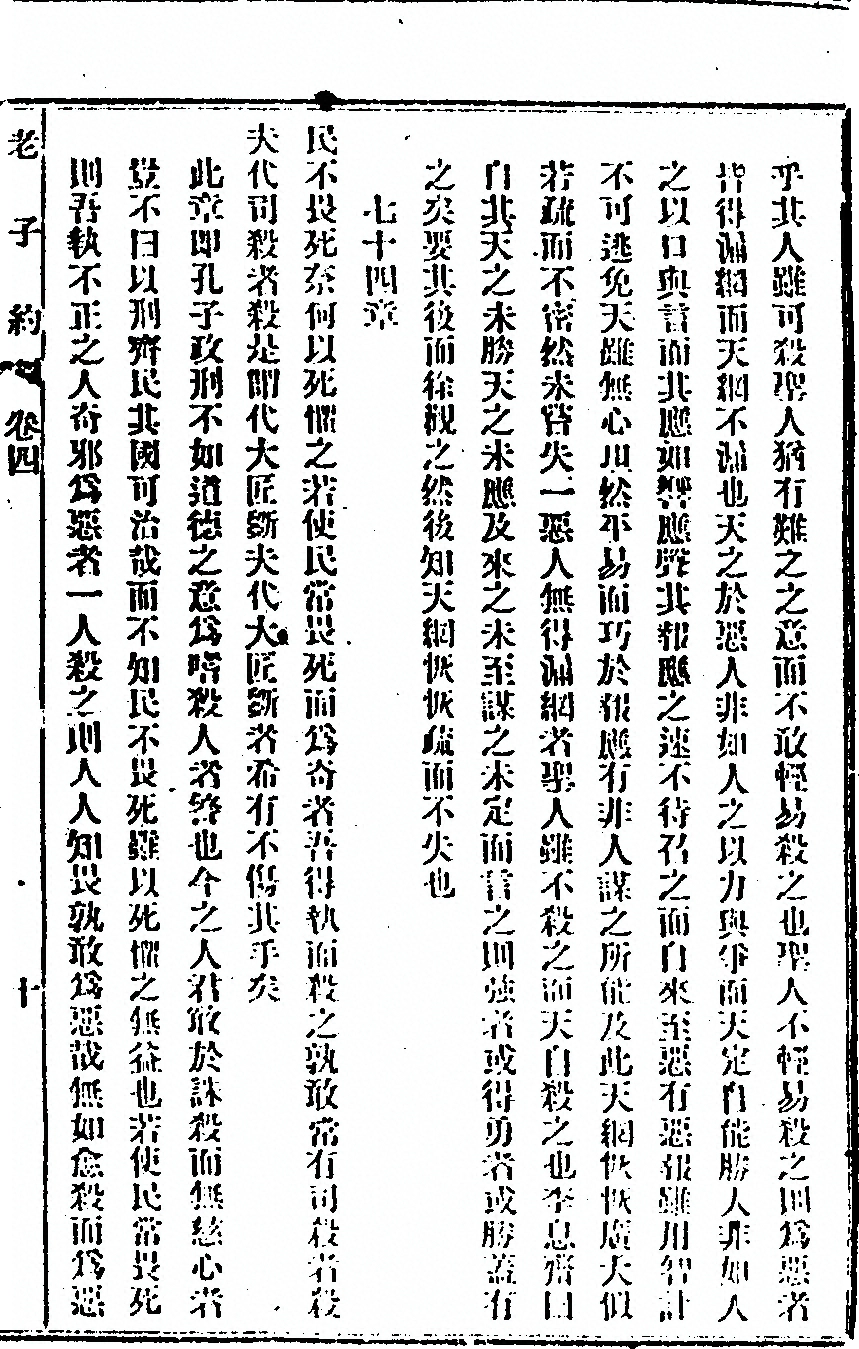 乎其人雖可殺聖人猶有難之之意而不敢輕易殺之也聖人不輕易殺之則爲惡者
皆得漏網而天網不漏也天之於惡人非如人之以力與爭而天定自能勝人非如人
之以口與言而其應如響應聲其報應之速不待召之而自來至惡有惡報雖用智計
不可逃免天雖無心坦然平易而巧於報應有非人謀之所能及此天網恢恢廣大似
若疏而不密然未嘗失一惡人無得漏網者聖人雖不殺之而天自殺之也李息齋曰
自其天之未勝天之未應及來之未至謀之未定而言之則強者或得勇者或勝蓋有
之矣要其後而徐觀之然後知天網恢恢疏而不失也
七十四章
民不畏死奈何以死懼之若使民常畏死而爲奇者吾得執而殺之孰敢常有司殺者殺
夫代司殺者殺是謂代大匠斲夫代大匠斲者希有不傷其手矣
此章即孔子政刑不如道德之意爲嗜殺人者警也今之人君敢於誅殺而無慈心者
豈不曰以刑齊民其國可治哉而不知民不畏死雖以死懼之無益也若使民常畏死
則吾執不正之人奇邪爲惡者一人殺之則人人知畏孰敢爲惡哉無如愈殺而爲惡
老子約 卷四 十